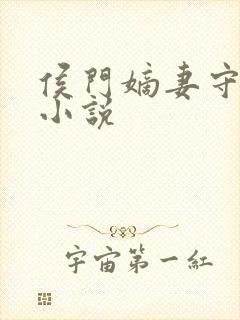 侯門嫡妻守
小說
宇宙第一紅